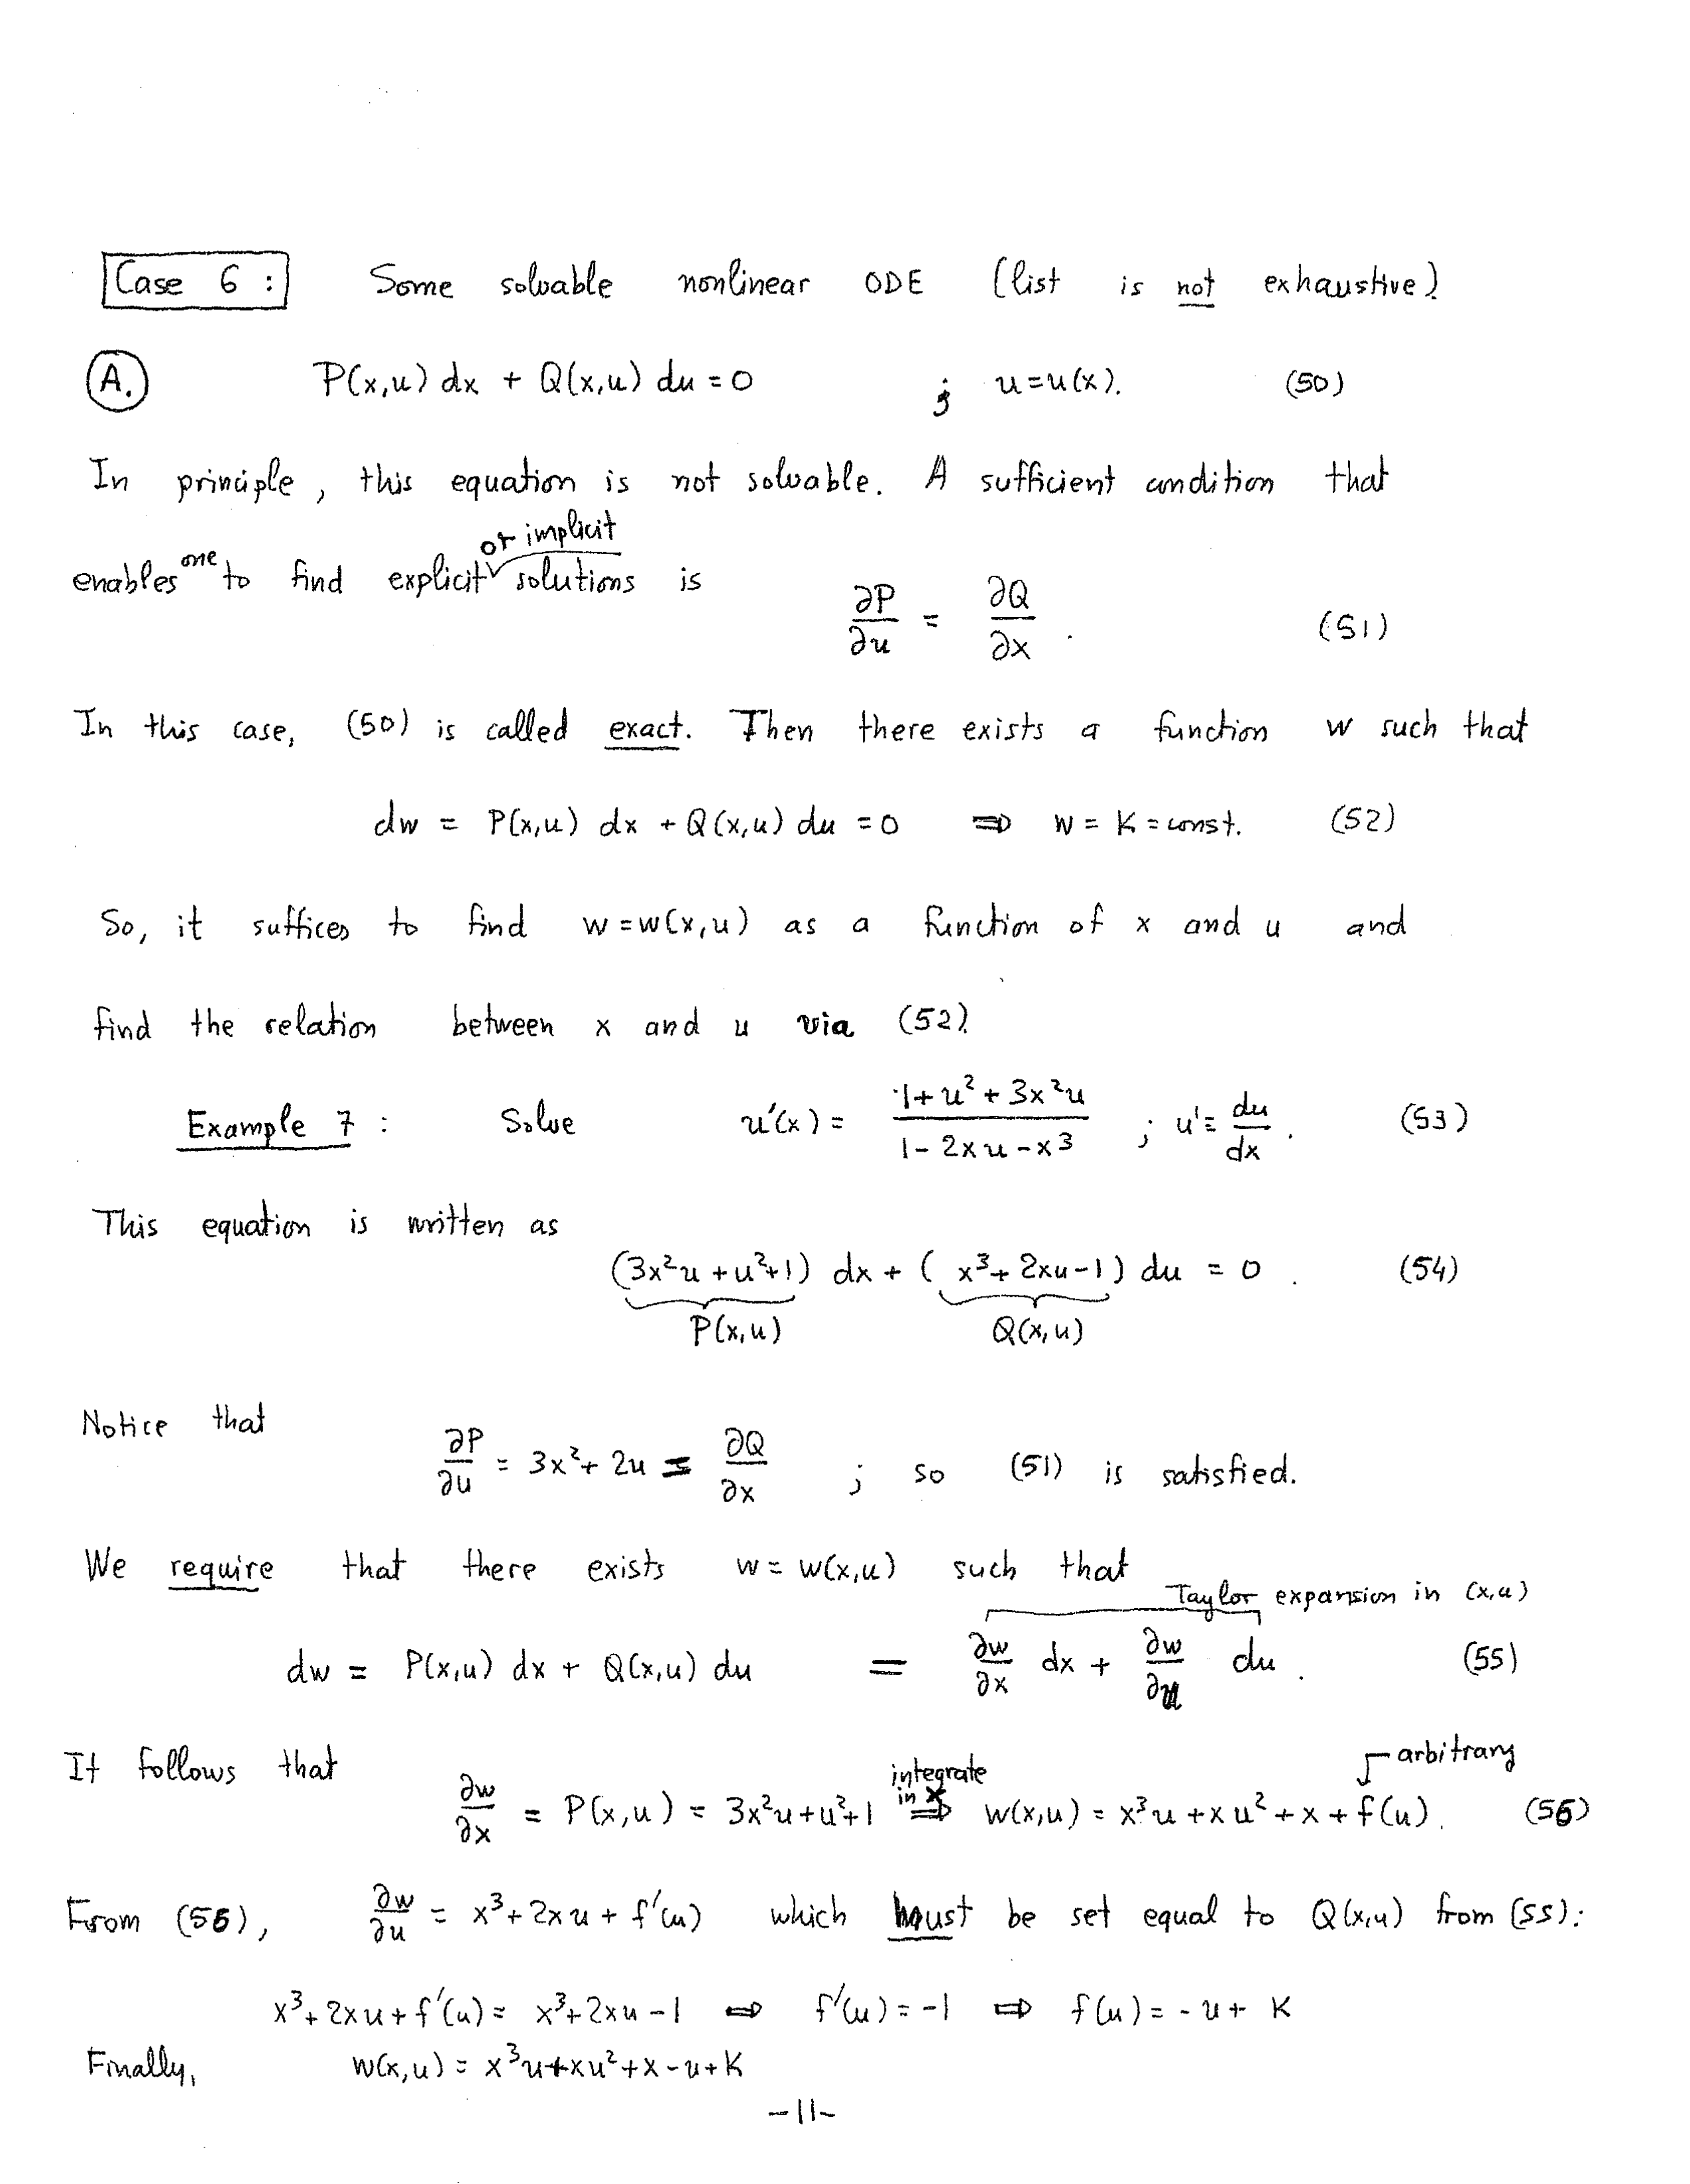 Case 6 : Some solvable nonlinear ODE (list is not exhaustive).
A. P(x,u) dx + Q(x,u) du = 0 ; u = u(x). (50)
In principle, this equation is not solvable. A sufficient condition that
enables one to find explicit or implicit solutions is
∂P/∂u = ∂Q/∂x . (51)
In this case, (50) is called exact. Then there exists a function w such that
dw = P(x,u) dx + Q(x,u) du = 0 ⟹ w = K = const. (52)
So, it suffices to find w = w(x,u) as a function of x and u and
find the relation between x and u via (52).
Example 7 : Solve u'(x) = (1 + u² + 3x²u)/(1 - 2xu - x³) ; u' = du/dx . (53)
This equation is written as
(3x²u + u² + 1) dx + ( x³ + 2xu - 1) du = 0 . (54)
P(x,u) Q(x,u)
Notice that
∂P/∂u = 3x² + 2u = ∂Q/∂x ; so (51) is satisfied.
We require that there exists w = w(x,u) such that
Taylor expansion in (x,u)
dw = P(x,u) dx + Q(x,u) du = ∂w/∂x dx + ∂w/∂u du . (55)
It follows that
arbitrary
∂w/∂x = P(x,u) = 3x²u + u² + 1 integrate in x ⟹ w(x,u) = x³u + xu² + x + f(u). (56)
From (56), ∂w/∂u = x³ + 2xu + f'(u) which must be set equal to Q(x,u) from (55):
x³ + 2xu + f'(u) = x³ + 2xu - 1 ⟹ f'(u) = -1 ⟹ f(u) = - u + K
Finally, w(x,u) = x³u + xu² + x - u + K
-11-